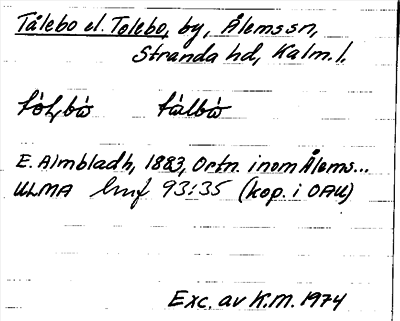 Tålebo el. Tolebo, by, Ålems sn,
Stranda hd, Kalm. l.
E. Almbladh, 1883, Ortn. inom Ålems...
ULMA 93:35 (kop. i OAU)
Exc. av K.M. 1974